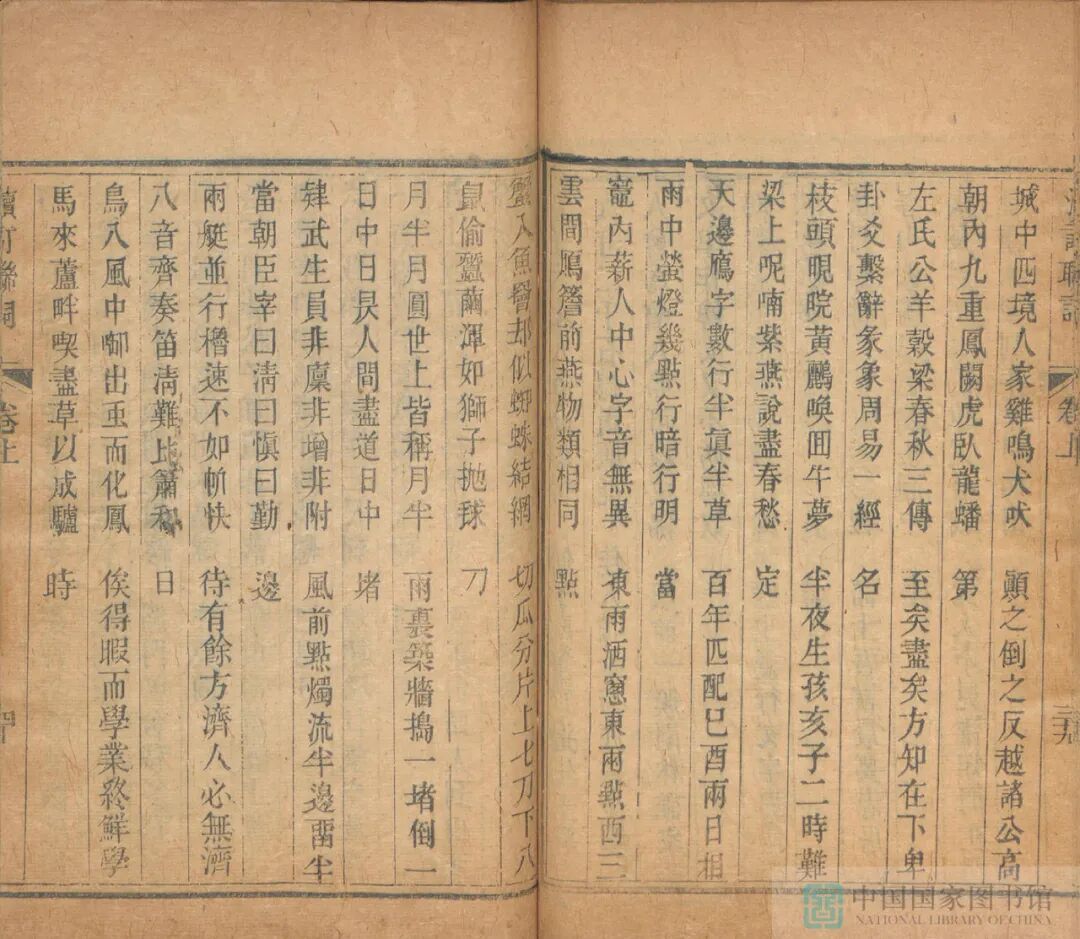 卷上 三九
城中四境人家雞鳴犬吠 顛之倒之反越諸公高
朝內九重鳳闕虎臥龍蟠 第
左氏公羊穀梁春秋三傳 至矣盡矣方知在下卑
卦爻繫辭彖象周易一經 名
枝頭晛睆黃鸝喚回午夢 半夜生孩亥子二時難
梁上呢喃紫燕說盡春愁 定
天邊鴈字數行半真半草 百年匹配巳酉兩日相
雨中螢燈幾點行暗行明 當
竈內薪人中心字音無異 東雨洒窻東雨點西三
雲間鴈簷前燕物類相同 點
蟹入魚罾却似蜘蛛結網 切瓜分片上七刀下八
鼠偷蠶繭渾如獅子拋球 刀
月半月圓世上皆稱月半 雨裏築牆搗一堵倒一
日中日昃人間盡道日中 堵
肆武生員非廩非增非附 風前點燭流半邊畱半
當朝臣宰曰清曰慎曰勤 邊
兩艇並行櫓速不如帆快 待有餘方濟人必無濟
八音齊奏笛清難比簫和 日
鳥入風中啣出虫而化鳳 俟得暇而學業終鮮學
馬來蘆畔喫盡草以成驢 時
續訂聯詞 卷上 四十
中国国家图书馆
NATIONAL LIBRARY OF CHINA